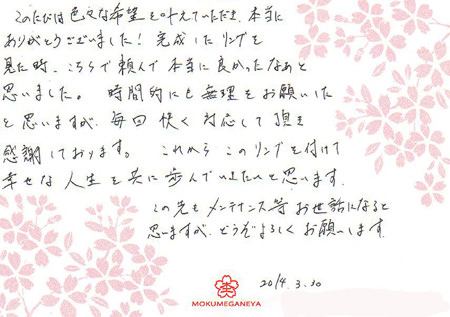 このたびは色々な希望を叶えていただき、本当に
ありがとうございました！ 完成したリングを
見た時、こちらで頼んで本当に良かったなぁと
思いました。 時間的にも無理をお願いした
と思いますが、毎回快く対応して頂き
感謝しております。 これからこのリングを付けて
幸せな人生を共に歩んでいきたいと思います。
この先もメンテナンス等お世話になると
思いますが、どうぞよろしくお願いします。
2014.3.30
MOKUMEGANEYA